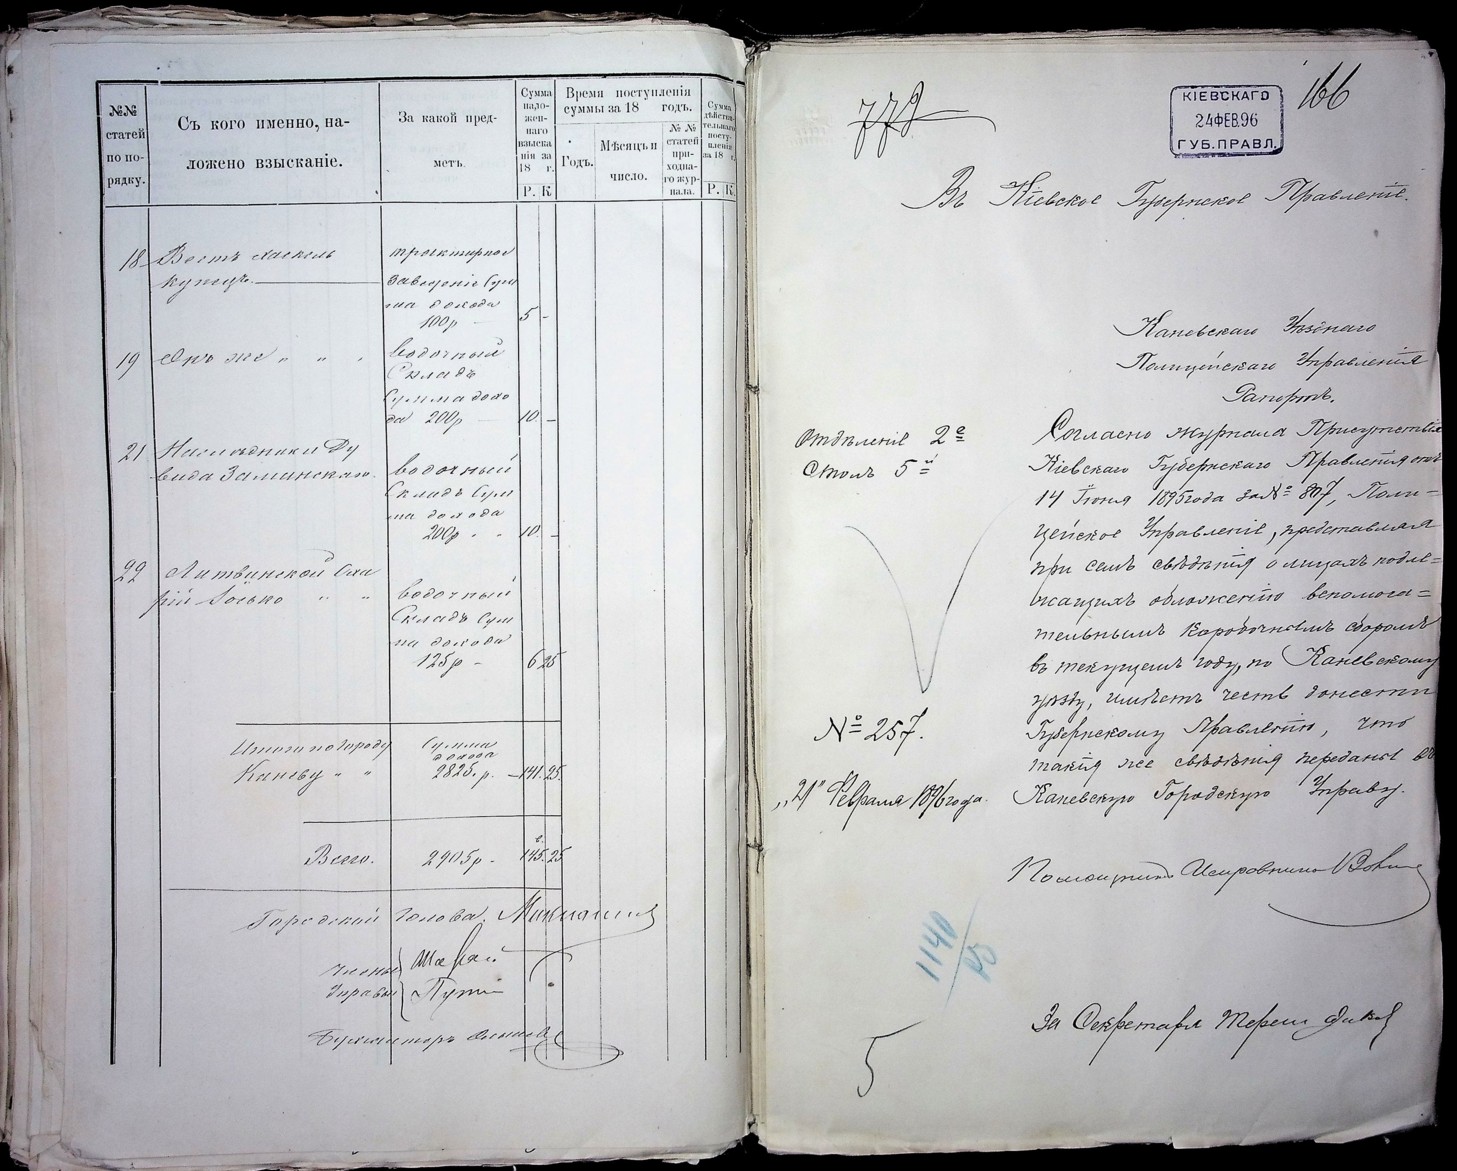 №№ статей по порядку.
Съ кого именно, наложено взысканіе.
За какой предметъ.
Сумма наложеннаго взысканія за 18 г.
Р. К.
Время поступленія суммы за 18 годъ.
Годъ.
Мѣсяцъ и число.
№ № статей приходнаго журнала.
Сумма дѣйствительнаго поступленія за 18 г.
Р. К.
18 трактирное
купецъ. заведеніе Сум
ма дохода
100р — 5 -
19 Онъ же " " " водочный
Складъ
Сумма дохо
да 200р — 10 -
21 Наслѣдники Ду
вида водочный
Складъ Сум
ма дохода
200р " " 10 -
22 Литвинской
водочный
Складъ Сум
ма дохода
125р - 6 25
Итого по городу Сумма
дохода
Каневу " " 2825 р. - 141.25
Всего. 2905р - 145.25
Городской Голова.
Члены
Управы
Бухгалтеръ
772
166
КІЕВСКАГО
24 ФЕВ.96
ГУБ.ПРАВЛ.
Въ Кіевское Губернское Правленіе.
Каневскаго Уѣзднаго
Полицейскаго Управленія
Рапортъ.
Отдѣленіе 2е
Столъ 5й
Согласно журнала Присутствія
Кіевскаго Губернскаго Правленія отъ
14 Іюня 1895 года за № 807, Поли=
цейское Управленіе, представляя
при семъ свѣдѣнія о лицахъ подле=
жащихъ обложенію вспомога=
тельнымъ коробочнымъ сборомъ
въ текущемъ году, по Каневскому
уѣзду, имѣетъ честь донести
Губернскому Правленію, что
такія же свѣдѣнія переданы въ
Каневскую Городскую Управу.
№ 257.
„21" Февраля 1896 года.
Помощникъ Исправника
1140/95
За Секретаря
5